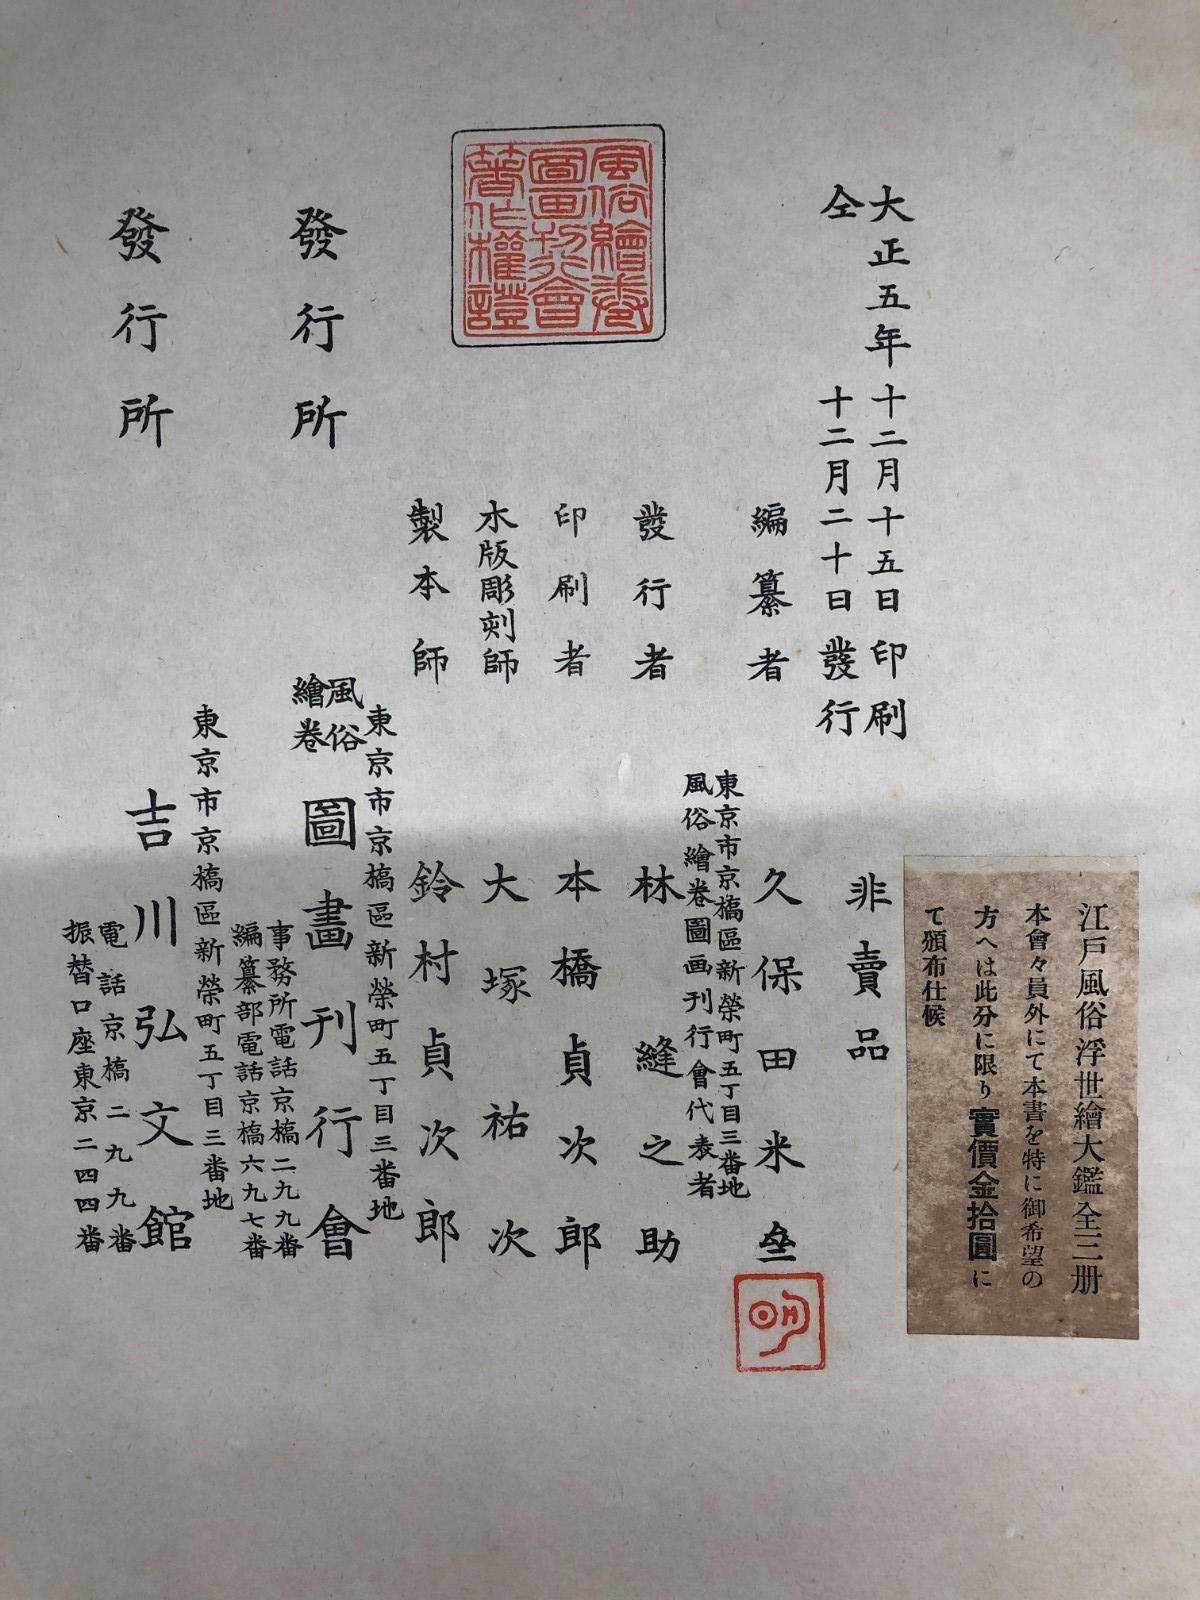 江戸風俗浮世繪大鑑全三册
本會々員外にて本書を特に御希望の
方へは此分に限り實價金拾圓に
て頒布仕候
大正五年十二月十五日印刷
仝十二月二十日發行
非賣品
編纂者 久保田米
東京市京橋區新榮町五丁目三番地
風俗繪卷圖画刊行會代表者
發行者 林縫之助
印刷者 本橋貞次郎
木版彫刻師 大塚祐次
製本師 鈴村貞次郎
風俗繪卷
圖画刊行會
著作權證
發行所
東京市京橋區新榮町五丁目三番地
風俗
繪卷
圖畫刊行會
事務所電話京橋二九九番
編纂部電話京橋六九七番
發行所
東京市京橋區新榮町五丁目三番地
吉川弘文館
電話京橋二九九番
振替口座東京二四四番